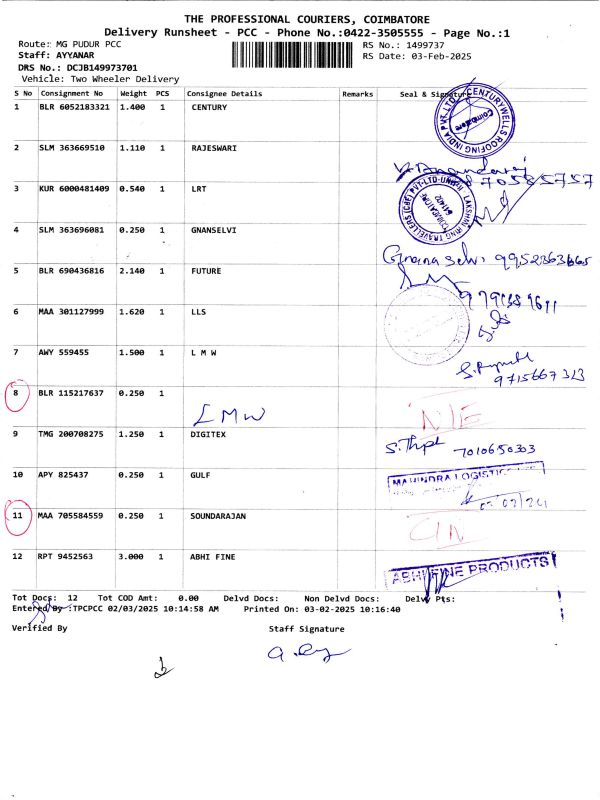 THE PROFESSIONAL COURIERS, COIMBATORE
Delivery Runsheet - PCC - Phone No.:0422-3505555 - Page No.:1
Route: MG PUDUR PCC RS No.: 1499737
Staff: AYYANAR RS Date: 03-Feb-2025
DRS No.: DCJB149973701
Vehicle: Two Wheeler Delivery
S No Consignment No Weight PCS Consignee Details Remarks Seal & Signature
1 BLR 6052183321 1.400 1 CENTURY
CENTURYWELLS ROOFING INDIA PVT.LTD
Coimbatore
2 SLM 363669510 1.110 1 RAJESWARI
3 KUR 6000481409 0.540 1 LRT
4 SLM 363696081 0.250 1 GNANSELVI
Gnana selvi 9952363665
5 BLR 690436816 2.140 1 FUTURE
6 MAA 301127999 1.620 1 LLS
7 AWY 559455 1.500 1 L M W
9715667313
8 BLR 115217637 0.250 1
LMW
9 TMG 200708275 1.250 1 DIGITEX
7010650303
10 APY 825437 0.250 1 GULF
MAHINDRA LOGISTICS
11 MAA 705584559 0.250 1 SOUNDARAJAN
12 RPT 9452563 3.000 1 ABHI FINE
ABHI FINE PRODUCTS
Tot Docs: 12 Tot COD Amt: 0.00 Delvd Docs: Non Delvd Docs: Delvy Pts:
Entered By :TPCPCC 02/03/2025 10:14:58 AM Printed On: 03-02-2025 10:16:40
Verified By Staff Signature